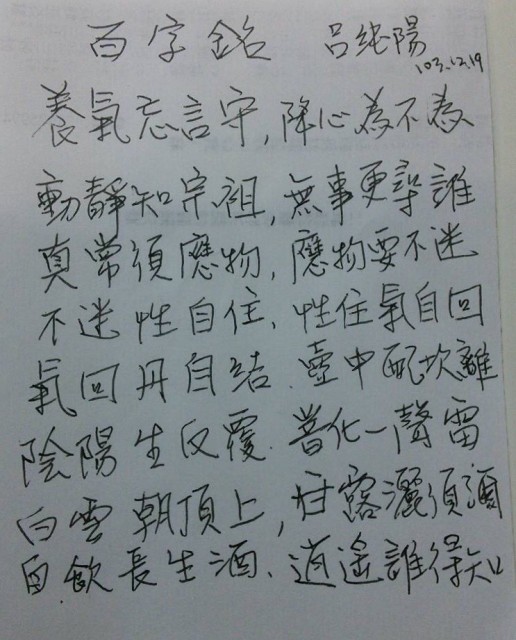 百字銘 呂純陽
103.12.19
養氣忘言守,降心為不為
動靜知宗祖,無事更尋誰
真常須應物,應物要不迷
不迷性自住、性住氣自回
氣回丹自結、壺中配坎離
陰陽生反覆、普化一聲雷
白雲朝頂上,甘露灑須
自飲長生酒、逍遙誰得知